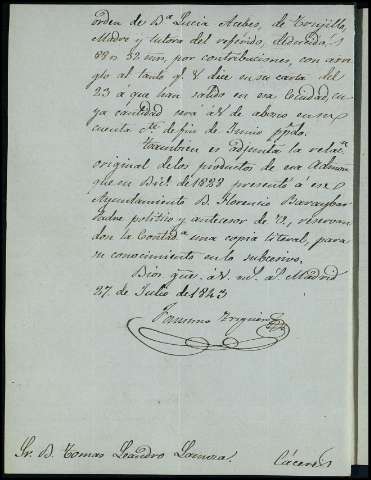 orden de Dª Lucia Acebes, de Trujillo,
Madre y tutora del referido, deducidos
88 rs 32 mrs, por contribuciones, con arre
glo al tanto q. V. dice en su carta del
23 á que han salido en esa Ciudad, cu
ya cantidad será á V. de abono en su
cuenta cte de fin de Junio ppdo.
Tambien es adjunta la relacn
original de los productos de esa Admon
que en Dice. de 1838 presentó á ese
Ayuntamiento D. Florencio Baraybar
Padre politico y antecesor de V., reservan
dose la Contadª una copia literal, para
su conocimiento en lo subcesivo.
Dios gue. á V. ms. as. Madrid
27 de Julio de 1843
Faustino
Sr. D. Tomas Leandro
Cáceres